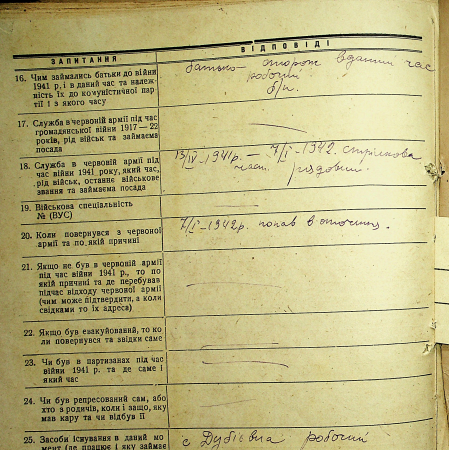 ЗАПИТАННЯ
ВІДПОВІДІ
16. Чим займались батьки до війни
1941 р, і в даний час та належ-
ність їх до комуністичної пар-
тії і з якого часу
батько сторож в даний час
робочий
б/п.
17. Служба в червоній армії під час
громадянської війни 1917—22
років, рід військ та займаєма
посада
18. Служба в червоній армії під
час війни 1941 року, який час,
рід військ, останнє військове
звання та займаєма посада
13/IV-1941р. — 7/I-1942. стрілкова
част. рядовий.
19. Військова спеціальність
№ (ВУС)
20. Коли повернувся з червоної
армії та по якій причині
7/I-1942р. попав в оточення.
21. Якщо не був в червоній армії
під час війни 1941 р., то по
якій причині та де перебував
підчас відходу червоної армії
(чим може підтвердити, а коли
свідками то їх адреса)
22. Якщо був евакуйований, то ко-
ли повернувся та звідки саме
23. Чи був в партизанах під час
війни 1941 р. та де саме і
який час
24. Чи був репресований сам, або
хто з родичів, коли і защо, яку
мав кару та чи відбув її
25. Засоби існування в даний мо-
мент (де працює і яку займає
с Дубієвка робочий